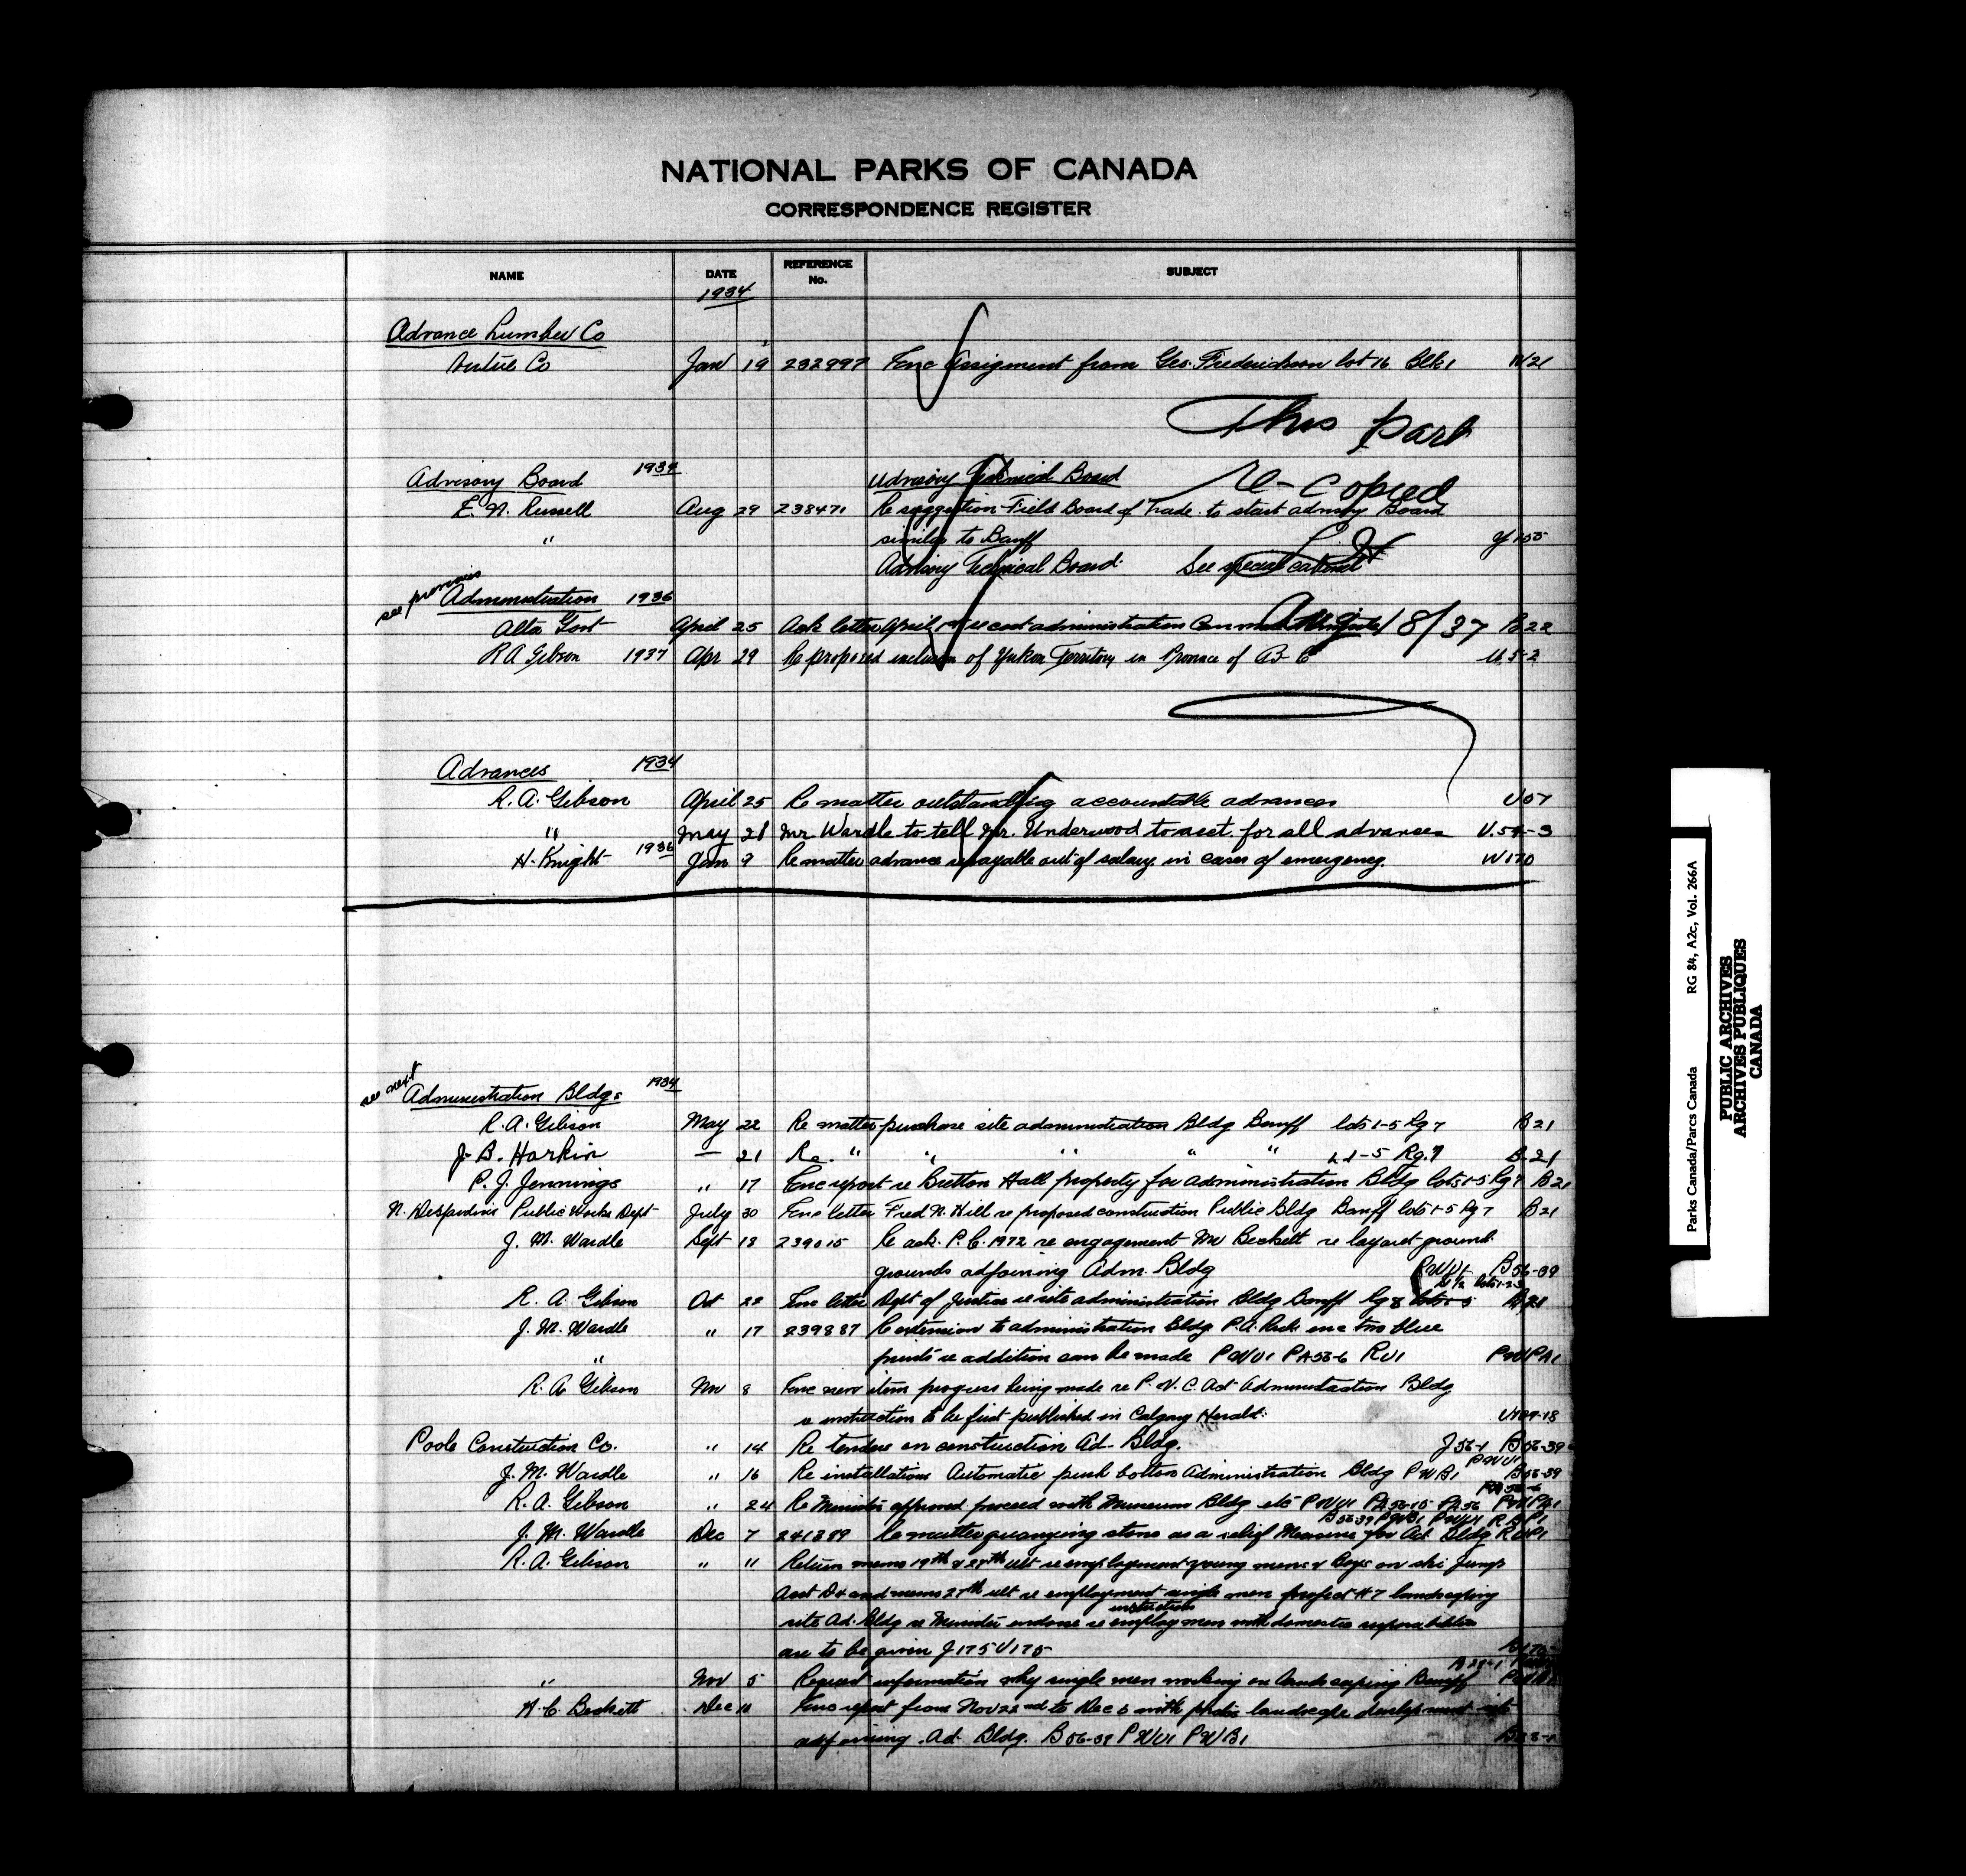 NATIONAL PARKS OF CANADA
CORRESPONDENCE REGISTER
NAME DATE REFERENCE No. SUBJECT
1934
Advance Lumber Co
Co Jan 19 232997 Enc assigment from Geo. Frederickson lot 16 Blk 1 W21
This part
Advisory Board 1934 Advisory Technical Board re-copied
E. N. Russell Aug 29 238471 Re suggestion Field Board of Trade to start advisory Board
" similar to Banff
Advisory Technical Board. See special
see previous
Administration 1936
Alta Govt April 25 Ack letter April re cost administration 18/37 B22
R A Gibson 1937 Apr 29 Re proposed inclusion of Yukon Territory in Province of B C U.5-2
Advances 1934
R. A. Gibson April 25 Re matter outstanding accountable advances
" May 28 Mr Wardle to tell Mr. Underwood to acct. for all advances
H. Knight 1936 Jan 9 Re matter advance repayable out of salary in cases of emergency. W170
see next
Administration Bldgs 1934
R. A. Gibson May 22 Re matter purchase site administration Bldg Banff lots 1-5 Rg 7 B21
J. B. Harkin — 21 Re. " " " " " L 1-5 Rg. 7 B.21
P. J. Jennings " 17 Enc report re Bretton Hall property for administration Bldg lots 1-5 Rg 7 B21
N. Desjardins Public Works Dept July 30 Enc letter Fred N. Hill re proposed construction Public Bldg Banff lots 1-5 Rg 7 B21
J. M. Wardle Sept 18 239015 Re ack. P.C. 1972 re engagement Mr Beckett re layout ground
grounds adjoining Adm. Bldg PWU1 B56-39
R. A. Gibson Oct 22 Enc letter Dept of Justice re site administration Bldg Banff Rg 8 B21
J. M. Wardle " 17 239887 Re extension to administration Bldg P.A. Park enc two blue
" prints re addition can be made PWU1 PA56-6 RU1 PWPA1
R. A. Gibson Nov 8 Enc news item progress being made re P.W.C. Act Administration Bldg
re instruction to be first published in Calgary Herald.
Poole Construction Co. " 14 Re tenders on construction Ad. Bldg. J56-1 B56-39
PWU1
J. M. Wardle " 16 Re installations Automatic push button Administration Bldg PWB1 B56-39
PA56-6
R. A. Gibson " 24 Re Minister approved proceed with Museum Bldg etc PWU1 PA56-15 PA56 PWPA1
B56-39 PWB1 PWU1
J. M. Wardle Dec 7 241389 Re matter quarrying stone as a relief Measure for Ad. Bldg
R. A. Gibson " 11 Return memo 19th & 28th ult re employment young mens & Boys on ski Jump
and memo 27th ult re employment single men project #7 landscaping
instruction
site Ad. Bldg re Minister endorse re employ men with domestic responsibilities
are to be given J175 U175
" Nov 5 Request information why single men working on landscaping Banff
H. C. Beckett Dec 10 Enc report from Nov 22nd to Dec 6 with photos landscape development site
adjoining Ad. Bldg. B56-39 PWU1 PWB1
Parks Canada/Parcs Canada RG 84, A2c, Vol. 266A
PUBLIC ARCHIVES
ARCHIVES PUBLIQUES
CANADA